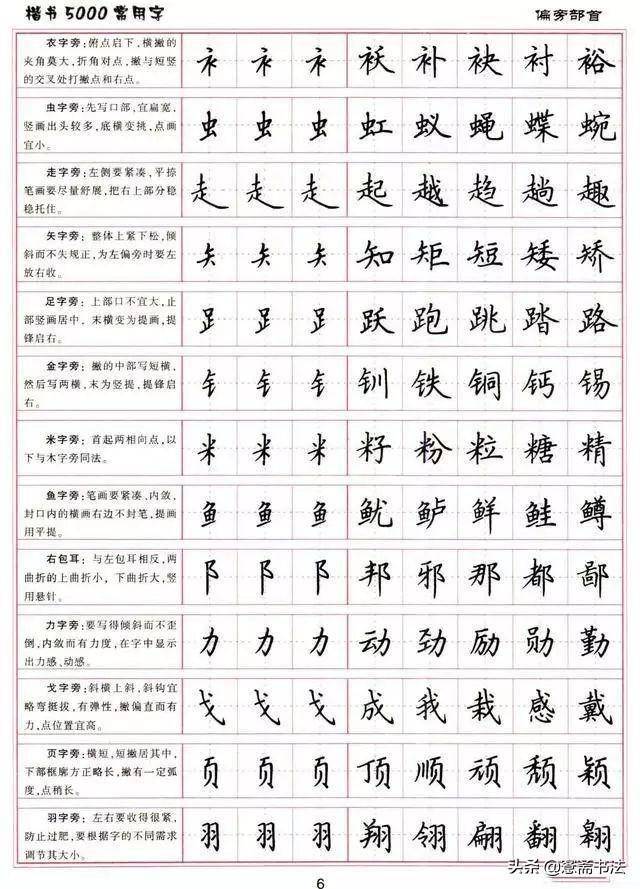 楷书5000常用字
偏旁部首
衣字旁:俯点启下,横撇的
夹角莫大,折角对点,撇与短竖
的交叉处打撇点和右点。
衤衤衤袄补袂衬裕
虫字旁:先写口部,宜扁宽,
竖画出头较多,底横变挑,点画
宜小。
虫虫虫虹蚁蝇蝶蜿
走字旁:左侧要紧凑,平捺
笔画要尽量舒展,把右上部分稳
稳托住。
走走走起越趋趟趣
矢字旁:整体上紧下松,倾
斜而不失规正,为左偏旁时要左
放右收。
矢矢矢知矩短矮矫
足字旁:上部口不宜大,止
部竖画居中,末横变为提画,提
锋启右。
𧾷𧾷𧾷跃跑跳踏路
金字旁:撇的中部写短横,
然后写两横,末为竖提,提锋启
右。
钅钅钅钏铁铜钙锡
米字旁:首起两相向点,以
下与木字旁同法。
米米米籽粉粒糖精
鱼字旁:笔画要紧凑,内敛,
封口内的横画右边不封笔,提画
用平提。
鱼鱼鱼鱿鲈鲜鲑鳟
右包耳:与左包耳相反,两
曲折的上曲折小,下曲折大,竖
用悬针。
阝阝阝邦邪那都鄙
力字旁:要写得倾斜而不歪
倒,内敛而有力度,在字中显示
出力感、动感。
力力力动劲励勋勤
戈字旁:斜横上斜,斜钩宜
略弯挺拔,有弹性,撇偏直而有
力,点位置宜高。
戈戈戈成我栽感戴
页字旁:横短,短撇居其中,
下部框廓方正略长,撇有一定弧
度,点稍长。
页页页顶顺顽颓颖
羽字旁:左右要收得很紧,
防止过肥,要根据字的不同需求
调节其大小。
羽羽羽翔翎翩翻翱
6
头条@薏斋书法